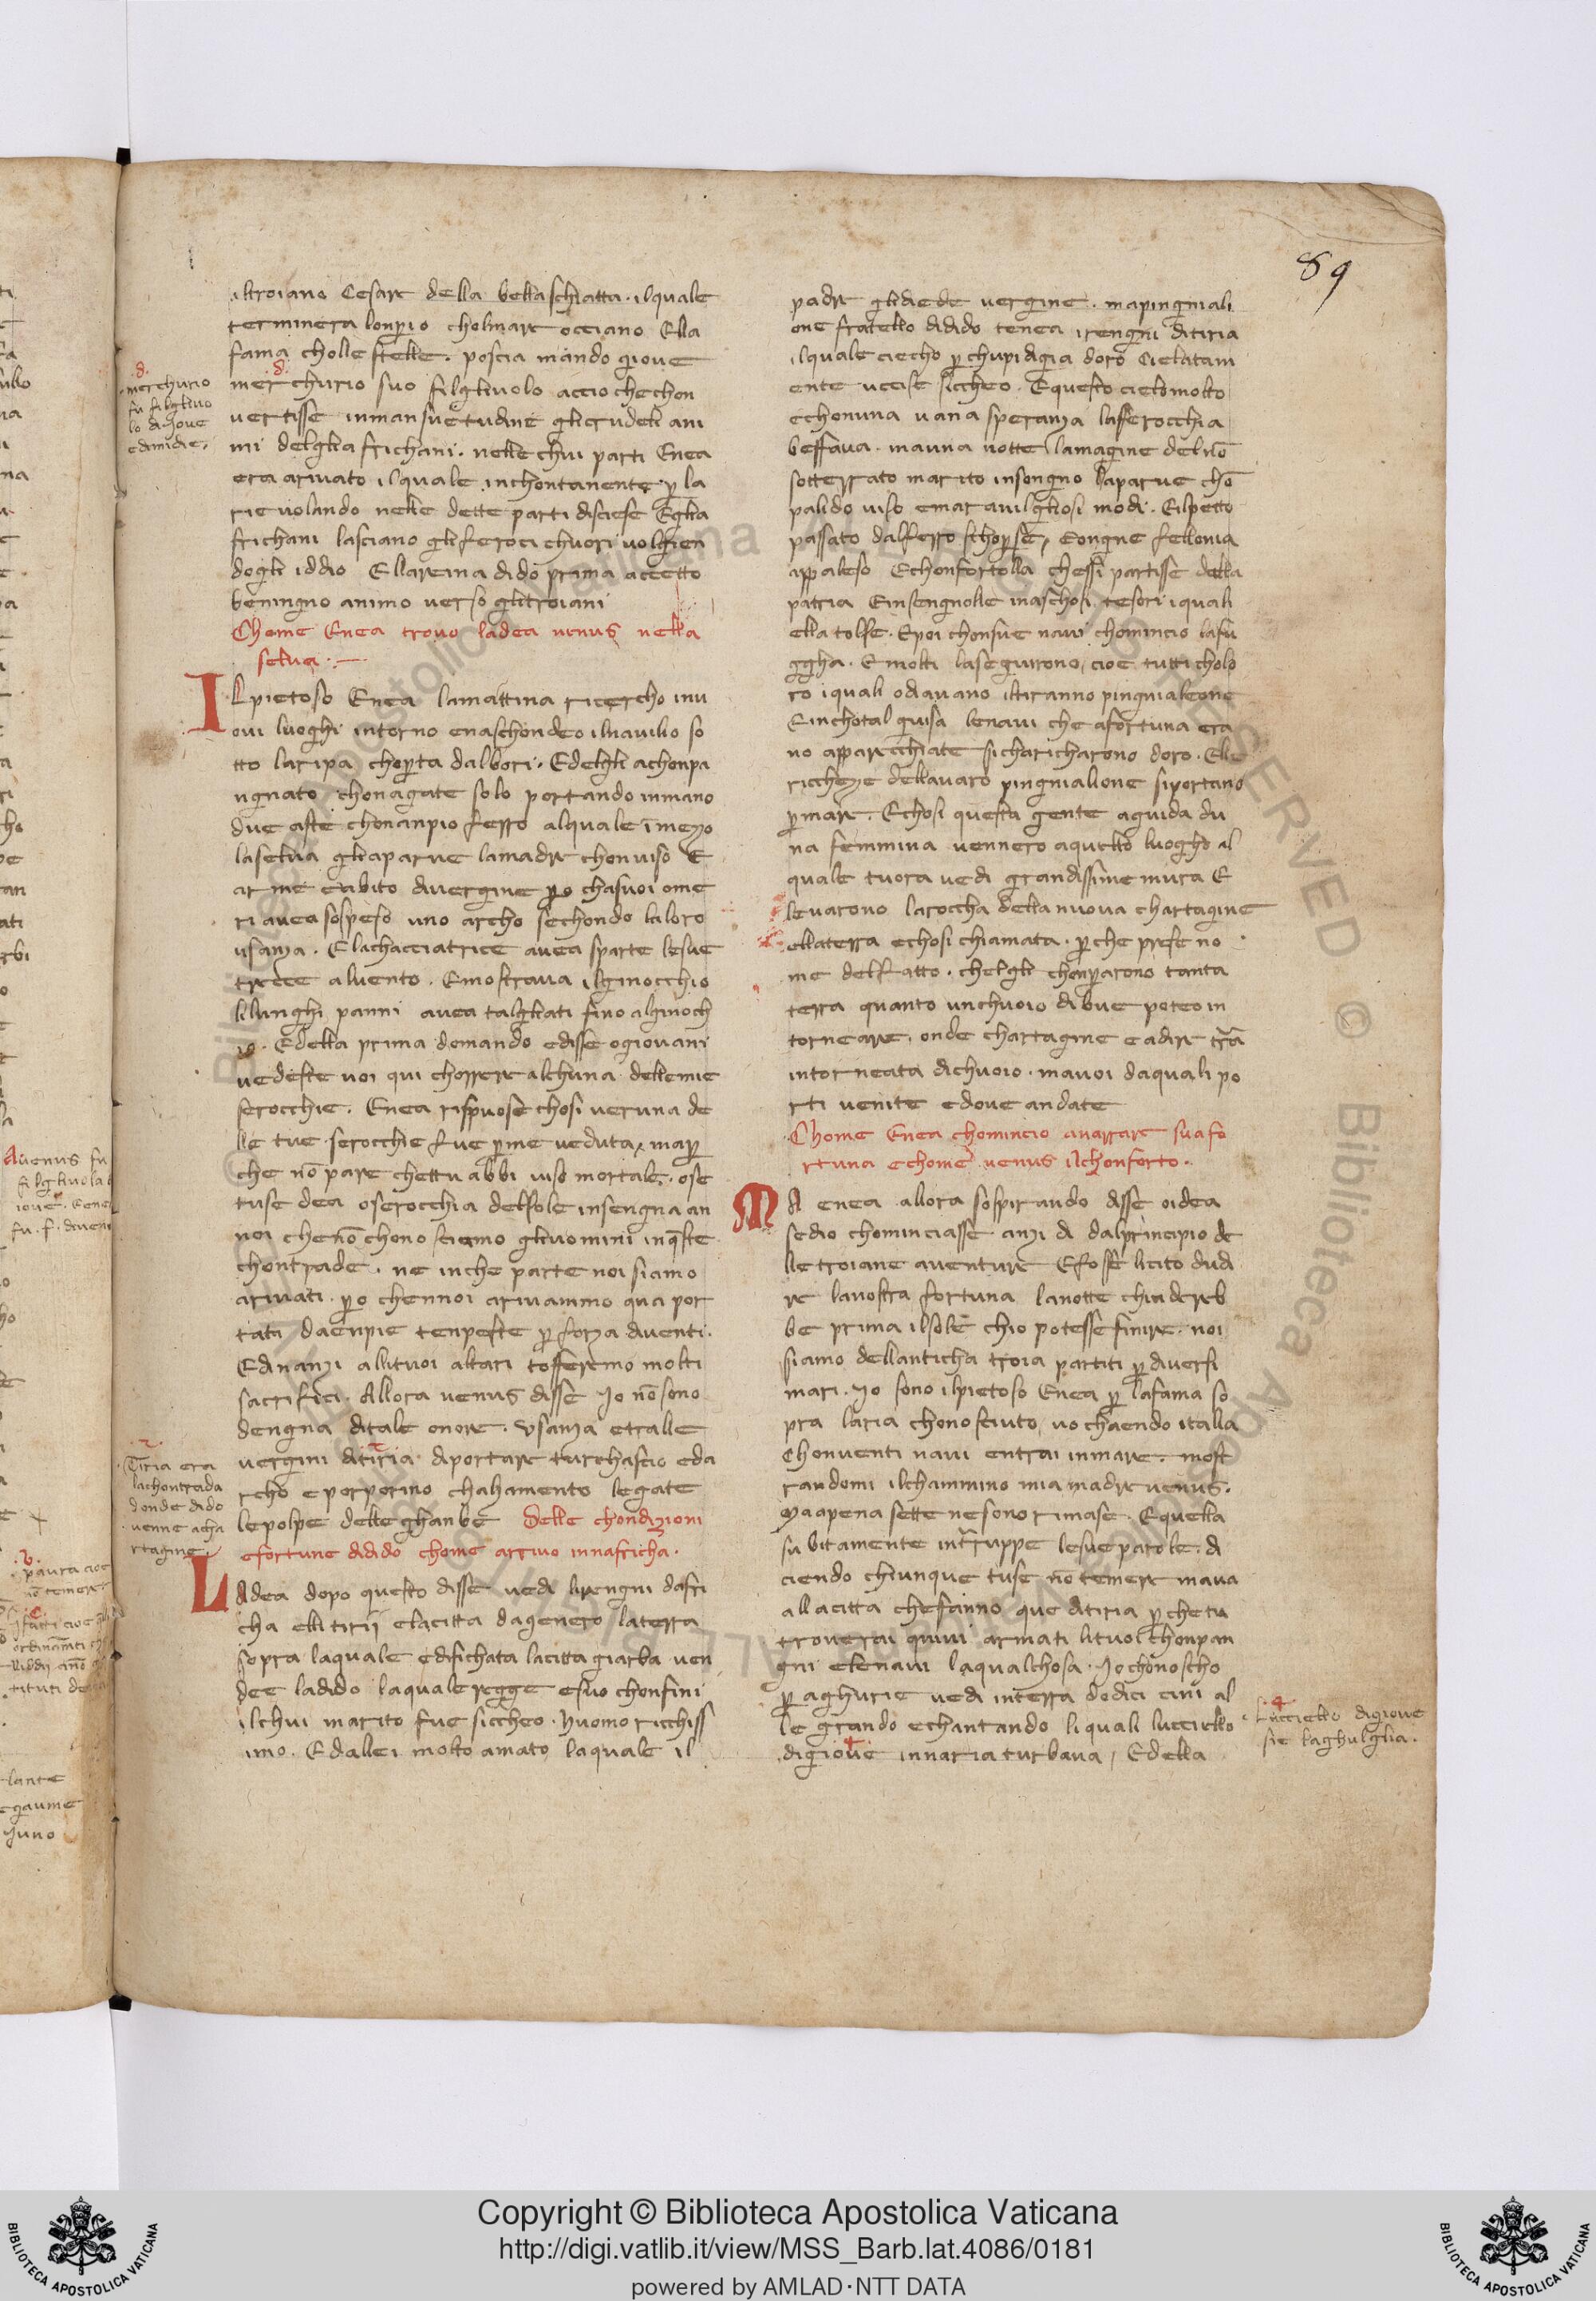 89
iltroiano Cesare della bella schiatta · ilquale
terminera lonperio cholmare occiano Ella
fama cholle stelle · poscia mando giove
merchurio suo filglivolo accio chechon
vertisse inmansuetudine glicrudeli ani
mi delglia frichani · nelle chui parti Enea
era arivato ilquale inchontanente p la
rie volando nelle dette parti discese Eglia
frichani lasciano gliferoci chuori volgien
dogli iddio Ellareina dido prima accetto
beningno animo verso glitroiani
Chome Enea trovo ladea venus nella
selva · —
Ilpietoso Enea lamattina ricercho inu
ovi luoghi intorno enaschondeo ilnavilio so
tto laripa choperta dalbori · Edelgli achonpa
ngnato chonagate solo portando inmano
due aste chonanpio ferro alquale īmezo
laselva gliaparve lamadre chonviso E
arme erabito divergine po chasuoi ome
ri avea sospeso uno archo sechondo laloro
usanza · Elachacciatrice avea sparte lesue
trecce alvento · Emostrava ilginocchio
lilunghi panni avea talgliati fino alginoch
io · Edella prima domando edisse ogiovani
vedeste voi qui chorrere alchuna dellemie
serocchie · Enea rispuose chosi veruna de
lle tue serocchie fue pme veduta · map
che nō pare chettu abbi viso mortale · ose
tuse dea oserocchia delsole insengna an
noi chenō chonosciamo glivomini inqste
chontrade · ne inche parte noi siamo
arivati · po chennoi arivammo qua por
tati daenpie tenpeste p forza diventi ·
Edinanzi allituoi altari tofferemo molti
sacrifici · Allora venus disse Io nō sono
dengna ditale onore · Usanza etralle
vergini ditiria diportare turchascio eda
rcho eporporino chalzamento legate
lepolpe delleghanbe Delle chondizioni
efortune didido chome arrivo innafricha ·
Ladea dopo questo disse vedi lirengni dafri
cha elli tirii elacitta dagenero laterra
sopra laquale edifichata lacitta giarba ven
dee ladido laquale regge esuo chonfini
ilchui marito fue siccheo · Huomo ricchiss
imo · Edallei molto amato laquale il
padre glidiede vergine · mapingniali
one fratello didido tenea irengni ditiria
ilquale ciecho p chupidigia doro cielatam
ente uccise siccheo · Equesto cielomolto
echonuna vana speranza lasserocchia
beffava · mauna notte lamagine delnō
sotterrato marito insongno laparve chō
palido viso emaravilgliosi modi · Eilpetto
passato dalferro schoperse, Eongne fellonia
appaleso Echonfortolla chessi partisse della
patria Einsengnolle inaschosi tesori iquali
ella tolse · Epoi chonsue navi chomincio lafu
ggha · Emolti laseguirono, cioe tutti cholo
ro iquali odiavano iltiranno pingnialeone
Einchotal guisa lenavi che afortuna era
no apparecchiate sicharicharono doro · Elle
riccheze dellavaro pingnialione siportano
pmare · Echosi questa gente aguida du
na femmina vennero aquello luogho al
quale tuora vedi grandissime mura E
levarono laroccha della nuova chartagine
ellaterra echosi chiamata · pche prese no
me delfatto · chelgli chonperarono tanta
terra quanto unchuoio dibue poteo in
torneare, onde chartagine eadire tra
intorneata dichuoio · mavoi daquali po
rti venite edove andate
Chome Enea chomincio anarrare suafo
rtuna echome venus ilchonforto ·
MA enea allora sospirando disse oidea
sedio chominciasse anzi di dalprincipio de
lle troiane aventure Efosse licito dudi
re lanostra fortuna lanotte chiudereb
be prima ilsole chio potesse finire · noi
siamo dellanticha troia partiti p diversi
mari · Io sono ilpietoso Enea p lafama so
pra laria chonosciuto, vo chaendo italia
Chonventi navi entrai inmare · most
randomi ilchammino mia madre venus ·
Ma apena sette nesono rimase · Equella
subitamente intruppe lesueparole · di
ciendo chiunque tuse nō temere mava
allacitta chefanno que ditiria pche tu
troverai quivi armati lituoi chonpan
gni elenavi laqualchosa · Io chonoscho
p aghurie vedi interra dodici cini al
legrando echantando liquali luccielo
digiove innaria turbava, Edella
· d ·
merchurio
fu filglivo
lo di Jove
edimaie,
Tiria era
lachontrada
donde dido
venne acha
rtagine,
Lucciello digiove
sie laghulglia ·
Copyright © Biblioteca Apostolica Vaticana
http://digi.vatlib.it/view/MSS_Barb.lat.4086/0181
powered by AMLAD·NTT DATA
BIBLIOTECA APOSTOLICA VATICANA
BIBLIOTECA APOSTOLICA VATICANA